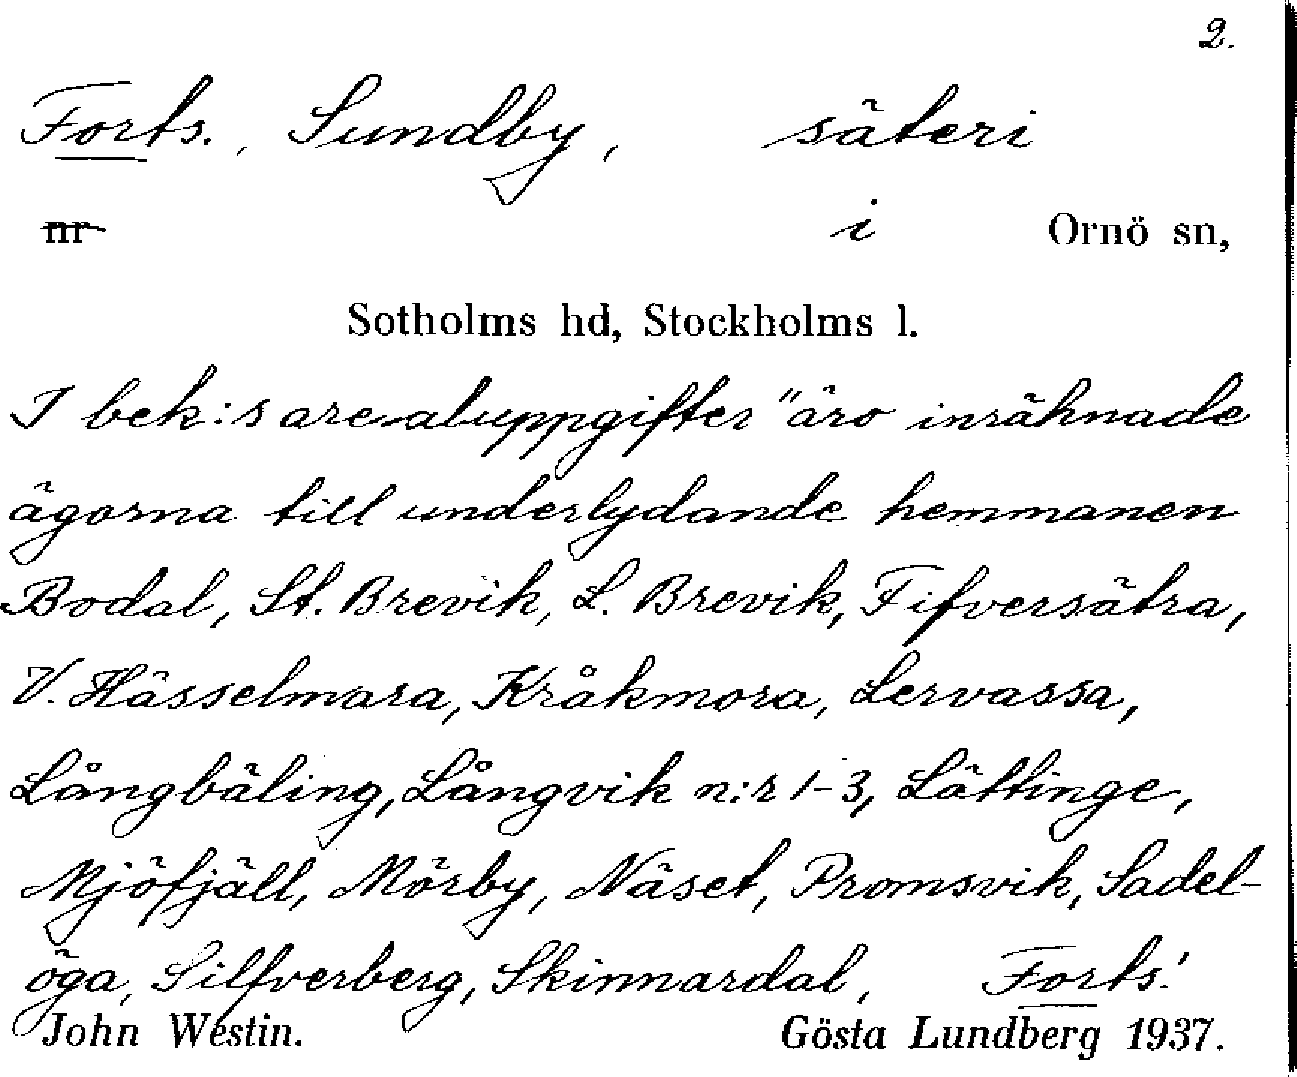 2.
Forts., Sundby, säteri
nr i Ornö sn,
Sotholms hd, Stockholms l.
I bek:s arealuppgifter "äro inräknade
ägorna till underlydande hemmanen
Bodal, St. Brevik, L. Brevik, Fifversätra,
V. Hässelmara, Kråkmora, Lervassa,
Långbäling, Långvik n:r 1-3, Lättinge,
Mjöfjäll, Mörby, Näset, Promsvik, Sadel-
öga, Silfverberg, Skinnardal, Forts.
John Westin. Gösta Lundberg 1937.